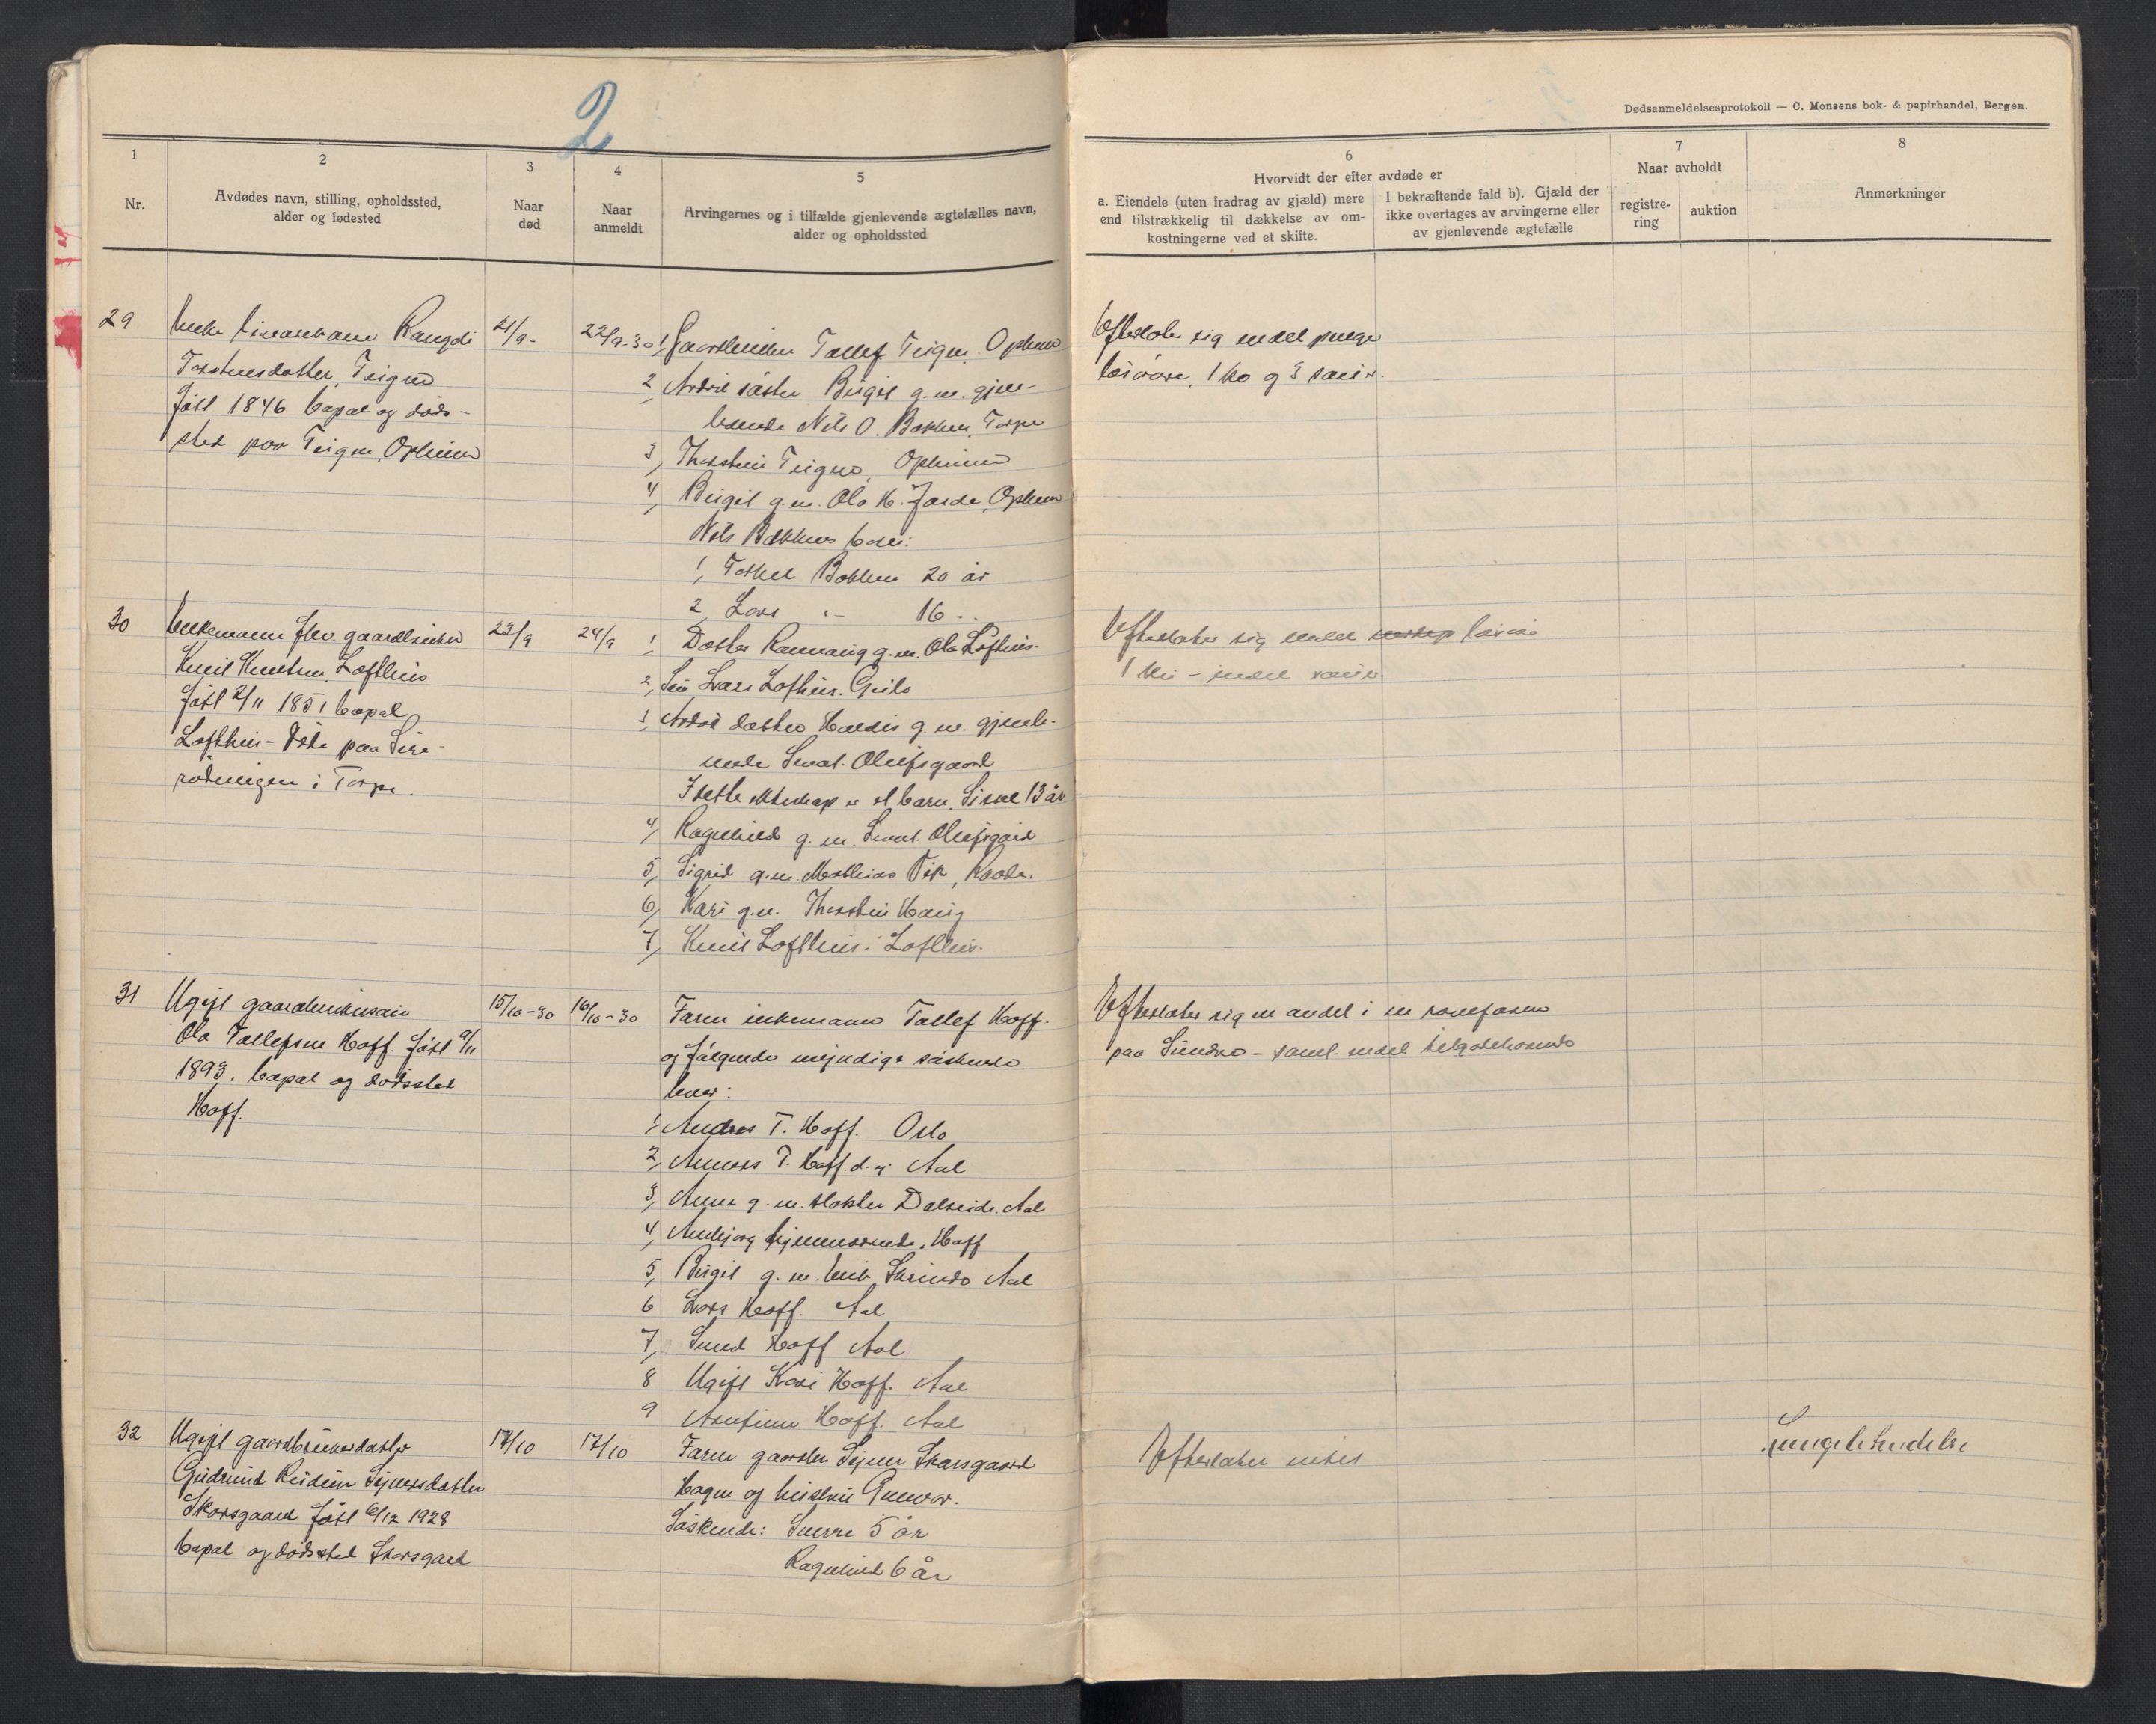 2
Dødsanmeldelsesprotokoll — C. Monsens bok- & papirhandel, Bergen.
1
Nr.
2
Avdødes navn, stilling, opholdssted,
alder og fødested
3
Naar
død
4
Naar
anmeldt
5
Arvingernes og i tilfælde gjenlevende ægtefælles navn,
alder og opholdssted
6
Hvorvidt der efter avdøde er
a. Eiendele (uten fradrag av gjæld) mere
end tilstrækkelig til dækkelse av om-
kostningerne ved et skifte.
I bekræftende fald b). Gjæld der
ikke overtages av arvingerne eller
av gjenlevende ægtefælle
7
Naar avholdt
registre-
ring
auktion
8
Anmerkninger
29
Enke Rangdi
Torstensdatter, Teigen
født 1846 bopæl og døds-
sted paa Teigen, Opheim
21/9-
22/9-30
1, Gaardbruker Tollef Teigen, Opheim
2, søster Birgit g.m. gjen-
levende Nils O. Bakken, Torpe
3, Thorstein Teigen, Opheim
4, Birgit g.m. Ola H. Jorde, Opheim
Nils Bakkens barn:
1, Torkel Bakken 20 år
2, Lars -"- 16 -"-
Efterlater sig endel penge
løsøre, 1 ko og 3 sauer.
30
Enkemann fhv. gaardbruker
Knut Knutsen Lofthus
født 2/11 1851 bopæl
Lofthus - Døde paa
i Torpe.
23/9
24/9
1, Datter Rannveig g.m. Ola Lofthus.
2, Søn Lars Lofthus. Geilo
3, datter Haldis g.m. gjenle-
vende Oleifsgaard
I dette ekteskap er et barn, 13 år
4, Ragnhild g.m. Oleifsgård
5, Sigrid g.m. Mathias
6, Kari g.m. Thorstein Haug
7, Knut Lofthus. Lofthus.
Efterlater sig endel løsøre
1 ku - endel sauer.
31
Ugift gaardbrukersøn
Ola Tollefsen Hoff. født 9/11
1893. bopæl og dødssted
Hoff.
15/10-30
16/10-30
Faren enkemann Tollef Hoff.
og følgende myndige søskende
lever:
1, Anders T. Hoff. Oslo
2, Anders T. Hoff. d.y. Aal
3, Anne g.m. slakter Aal
4, Andbjørg hjemmeværende, Hoff
5, Birgit g.m. Erik Skrindo Aal
6 Lars Hoff. Aal
7, Hoff Aal
8 Ugift Kari Hoff. Aal
9 Arnfinn Hoff. Aal
Efterlater sig en andel i en revefarm
paa Sundre - samt endel
32
Ugift gaardbrukerdatter
Gudrund Reidun
Skarsgaard født 6/12 1928
bopæl og dødssted Skarsgard
17/10
17/10
Faren gaardbr. Skarsgaard
Hagen og hustru Gunvor.
Søskende: Sverre 5 år
Ragnhild 6 år
Efterlater intet